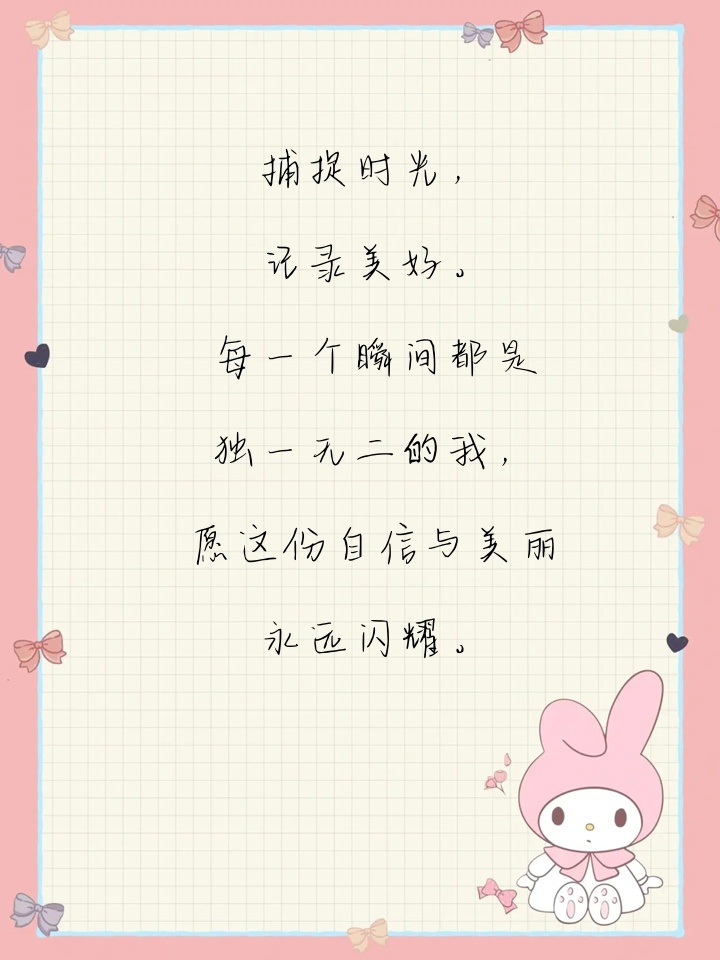 捕捉时光，
记录美好。
每一个瞬间都是
独一无二的我，
愿这份自信与美丽
永远闪耀。